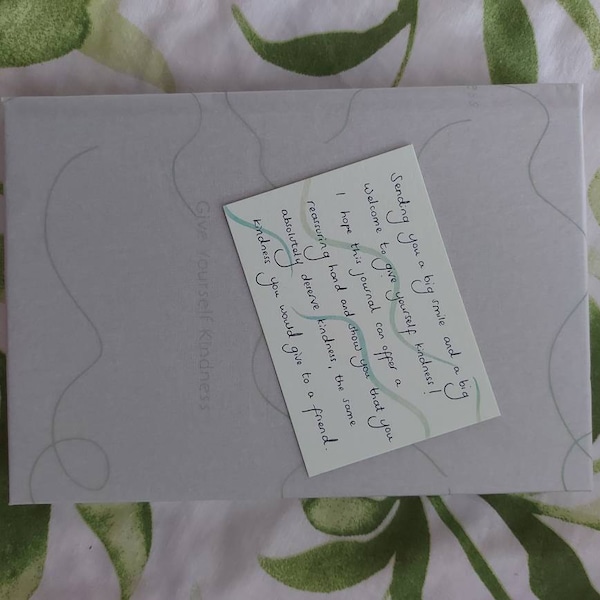 Give Yourself Kindness
Sending you a big smile and a big
welcome to give yourself kindness!
I hope this journal can offer a
reassuring hand and show you that you
absolutely deserve kindness, the same
kindness you would give to a friend.